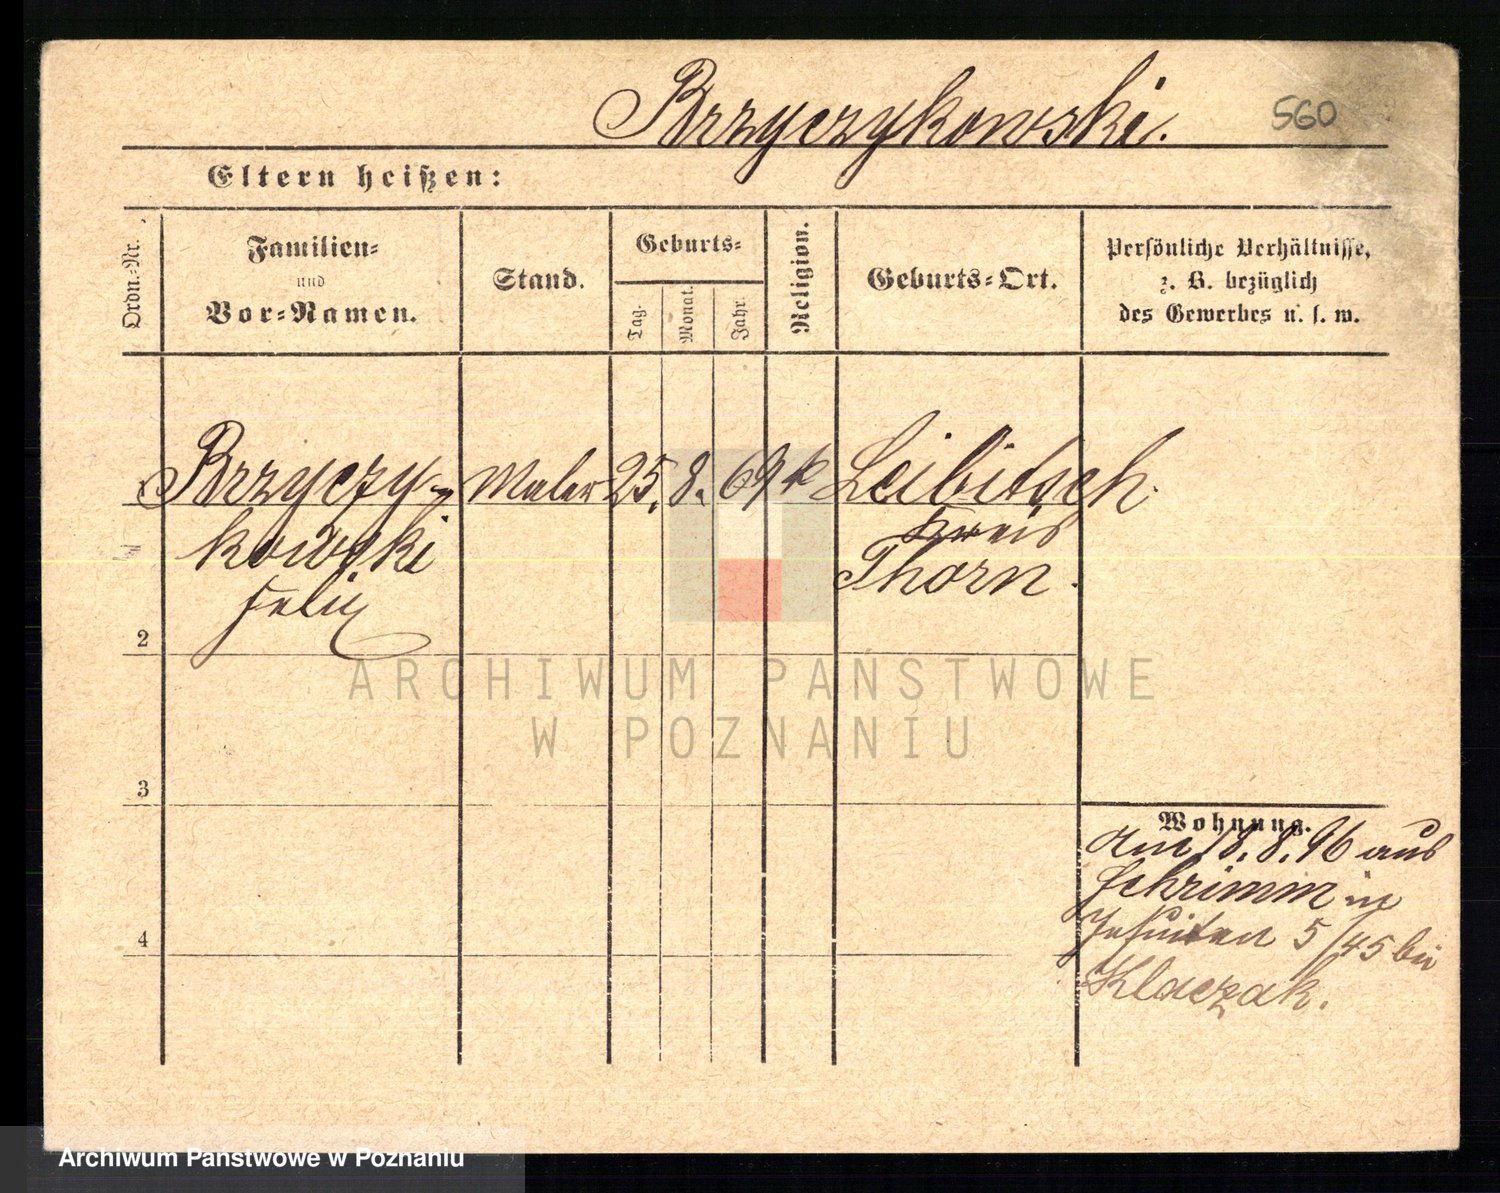 Brzyczykowski.
560
Eltern heißen:
Ordn.-Nr.
Familien-
und
Vor-Namen.
Stand.
Geburts-
Tag.
Monat.
Jahr.
Religion.
Geburts-Ort.
Persönliche Verhältnisse,
z. B. bezüglich
des Gewerbes u. s. w.
1 Brzyczy- Maler 25. 8. 69 k Leibitsch
kowski Kreis
Felix Thorn.
2
3
4
Wohnung.
Am 18.8.96 aus
Schrimm in
Jesuiten 5/45 bei
Klaczak.
ARCHIWUM PAŃSTWOWE
W POZNANIU
Archiwum Państwowe w Poznaniu